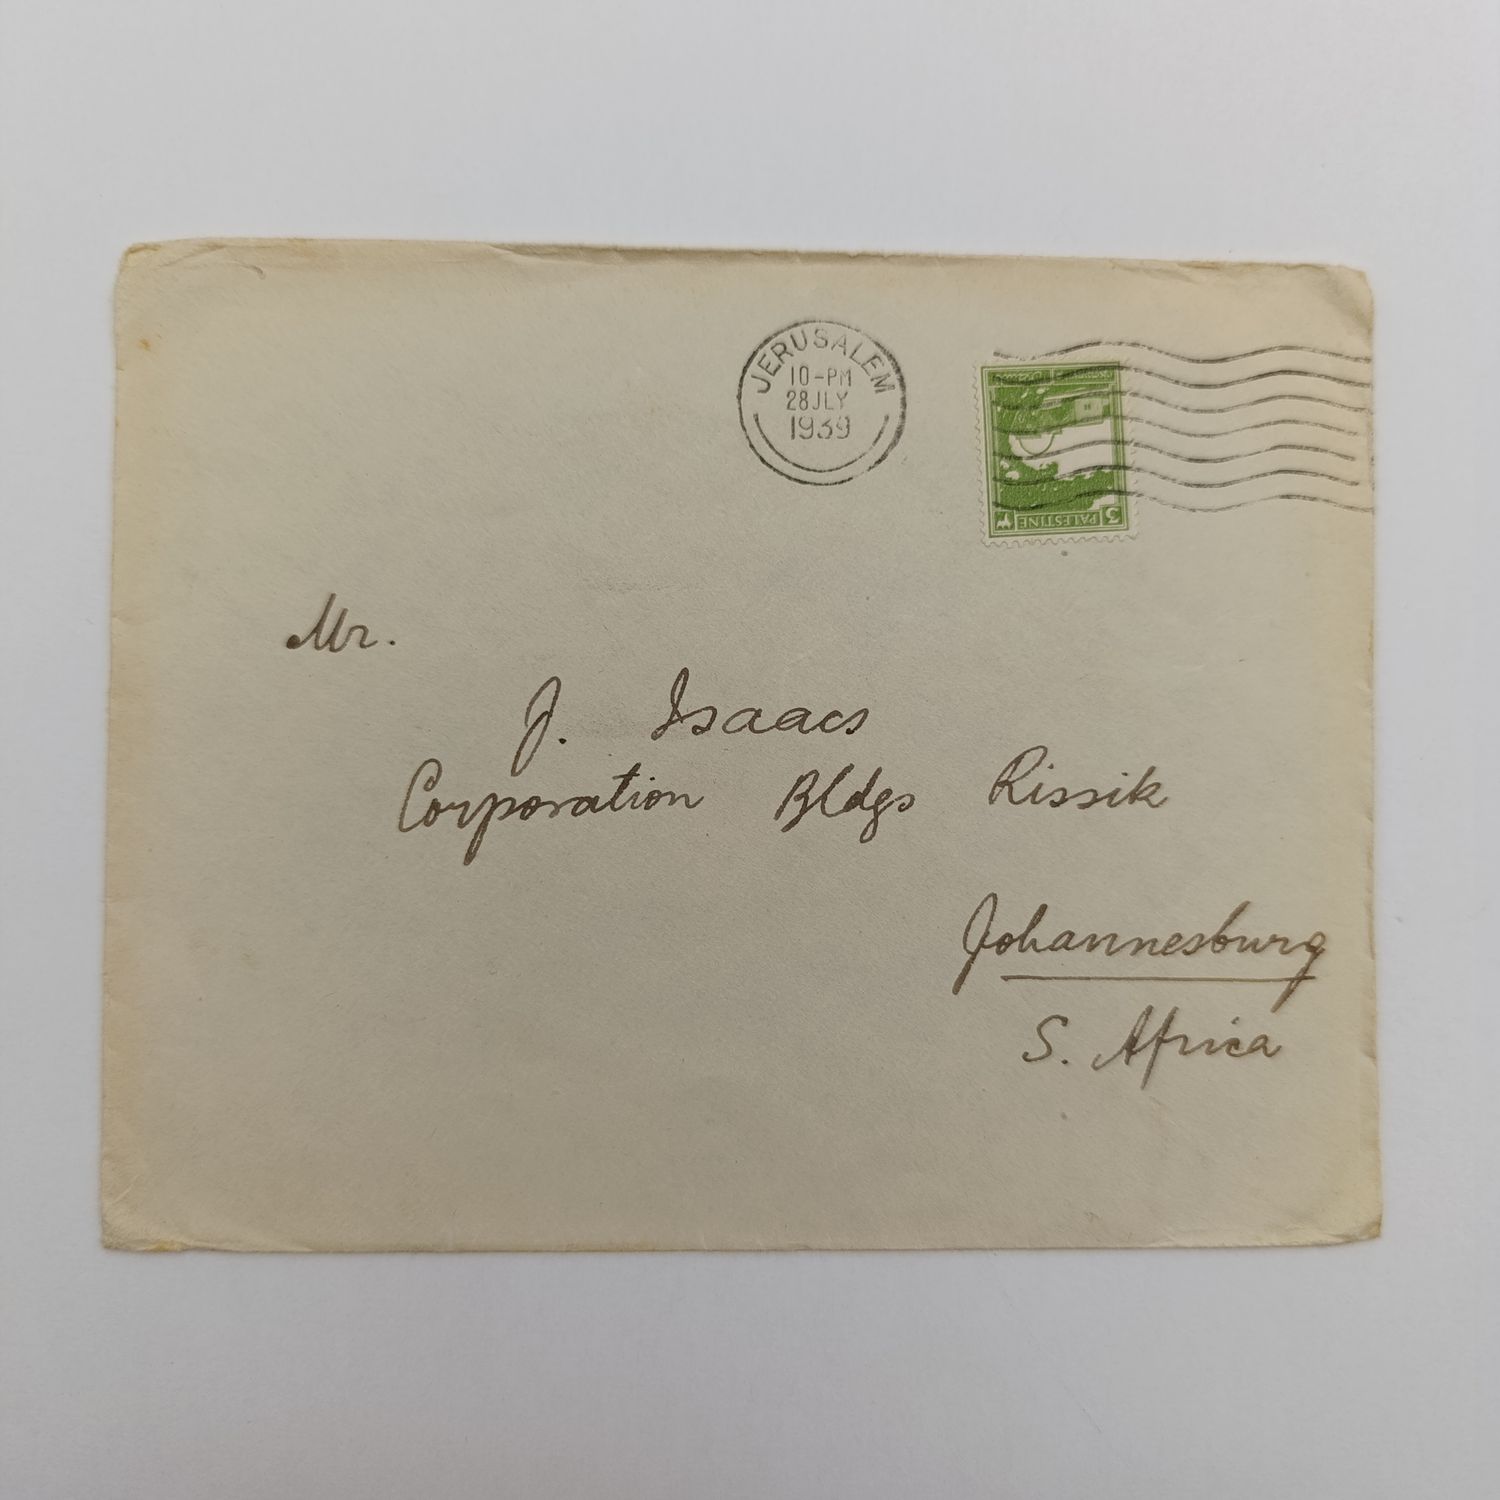 JERUSALEM
10-PM
28JLY
1939
3 PALESTINE
Mr.
J. Isaacs
Corporation Bldgs Rissik
Johannesburg
S. Africa